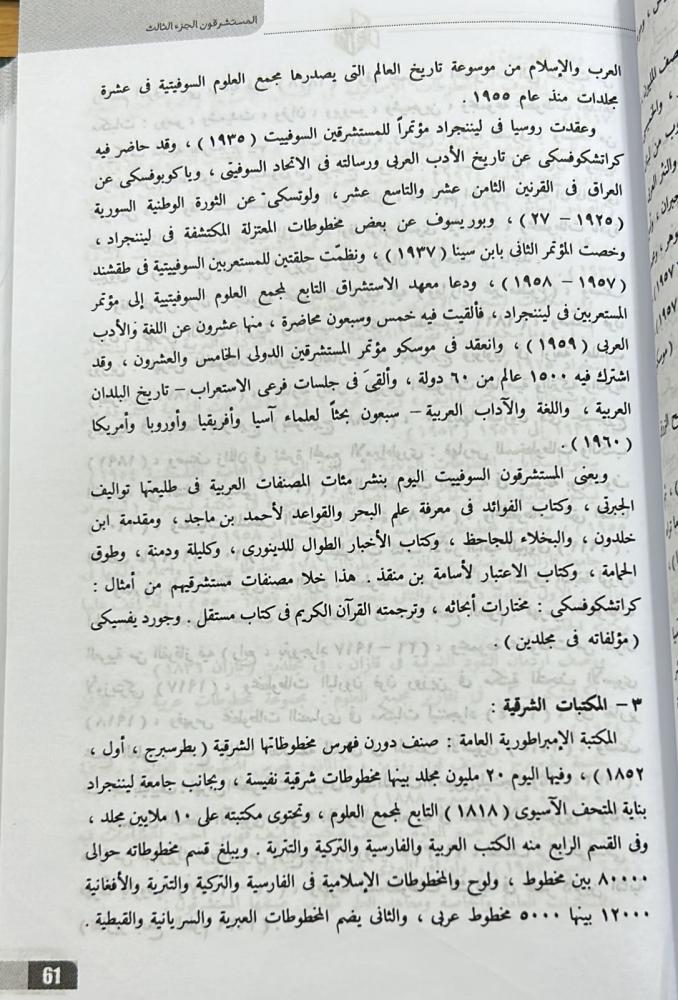 المستشرقون الجزء الثالث
العرب والإسلام من موسوعة تاريخ العالم التى يصدرها مجمع العلوم السوفيتية فى عشرة
مجلدات منذ عام ١٩٥٥ .
وعقدت روسيا فى ليننجراد مؤتمراً للمستشرقين السوفييت ( ١٩٣٥ ) ، وقد حاضر فيه
كراتشكوفسكى عن تاريخ الأدب العربى ورسالته فى الاتحاد السوفيتى ، وياكوبوفسكى عن
العراق فى القرنين الثامن عشر والتاسع عشر ، ولوتسكى عن الثورة الوطنية السورية
( ١٩٢٥ – ٢٧ ) ، وبوريسوف عن بعض مخطوطات المعتزلة المكتشفة فى ليننجراد ،
وخصت المؤتمر الثانى بابن سينا ( ١٩٣٧ ) ، ونظمّت حلقتين للمستعربين السوفييتية فى طقشند
( ١٩٥٧ – ١٩٥٨ ) ، ودعا معهد الاستشراق التابع لمجمع العلوم السوفيتيية إلى مؤتمر
المستعربين فى ليننجراد ، فألقيت فيه خمس وسبعون محاضرة ، منها عشرون عن اللغة والأدب
العربى ( ١٩٥٩ ) ، وانعقد فى موسكو مؤتمر المستشرقين الدولى الخامس والعشرون ، وقد
اشترك فيه ١٥٠٠ عالم من ٦٠ دولة ، وألقىَ فى جلسات فرعى الاستعراب – تاريخ البلدان
العربية ، واللغة والآداب العربية – سبعون بحثاً لعلماء آسيا وأفريقيا وأوروبا وأمريكا
( ١٩٦٠ ) .
ويعنى المستشرقون السوفييت اليوم بنشر مئات المصنفات العربية فى طليعتها تواليف
الجبرتى ، وكتاب الفوائد فى معرفة علم البحر والقواعد لأحمد بن ماجد ، ومقدمة ابن
خلدون ، والبخلاء للجاحظ ، وكتاب الأخبار الطوال للدينورى ، وكليلة ودمنة ، وطوق
الحمامة ، وكتاب الاعتبار لأسامة بن منقذ . هذا خلا مصنفات مستشرقيهم من أمثال :
كراتشكوفسكى : مختارات أبحاثه ، وترجمته القرآن الكريم فى كتاب مستقل . وجورد يفسيكى
( مؤلفاته فى مجلدين ) .
٣ – المكتبات الشرقية :
المكتبة الإمبراطورية العامة : صنف دورن فهرس مخطوطاتها الشرقية ( بطرسبرج ، أول ،
١٨٥٢ ) ، وفيها اليوم ٢٠ مليون مجلد بينها مخطوطات شرقية نفيسة ، وبجانب جامعة ليننجراد
بناية المتحف الآسيوى ( ١٨١٨ ) التابع لمجمع العلوم ، وتحتوى مكتبته على ١٠ ملايين مجلد ،
وفى القسم الرابع منه الكتب العربية والفارسية والتركية والتترية . ويبلغ قسم مخطوطاته حوالى
٨٠٠٠٠ بين مخطوط ، ولوح والمخطوطات الإسلامية فى الفارسية والتركية والتترية والأفغانية
١٢٠٠٠ بينها ٥٠٠٠ مخطوط عربى ، والثانى يضم المخطوطات العبرية والسريانية والقبطية .
61